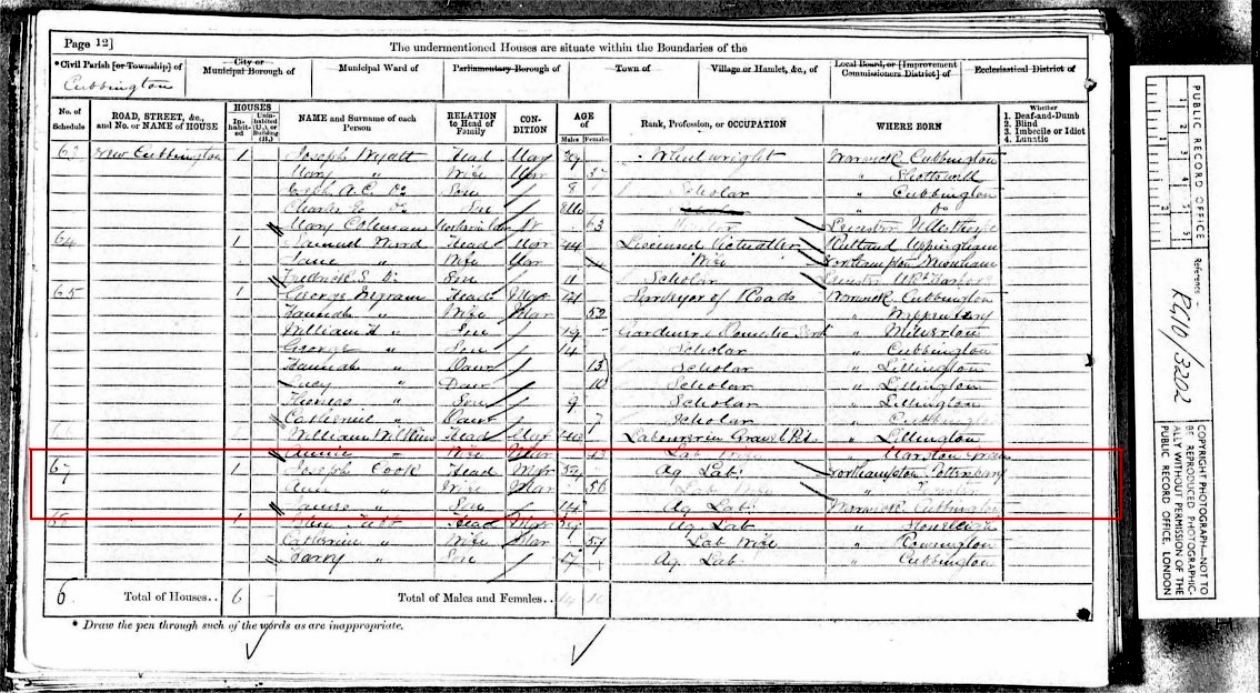 Page 12]
The undermentioned Houses are situate within the Boundaries of the
*Civil Parish [or Township] of
City or Municipal Borough of
Municipal Ward of
Parliamentary Borough of
Town of
Village or Hamlet, &c., of
Local Board, or [Improvement Commissioners District] of
Ecclesiastical District of
Cubbington
No. of Schedule
ROAD, STREET, &c., and No. or NAME of HOUSE
HOUSES
In-habit-ed
Unin-habited (U.), or Building (B.)
NAME and Surname of each Person
RELATION to Head of Family
CON-DITION
AGE of
Males
Females
Rank, Profession, or OCCUPATION
WHERE BORN
Whether
1. Deaf-and-Dumb
2. Blind
3. Imbecile or Idiot
4. Lunatic
63 New Cubbington 1 Joseph Wyatt Head Mar 39 Wheelwright Warwick Cubbington
Mary " Wife Mar 37 "
Do Son 8 Scholar " Cubbington
Charles Do Son Scholar " Do
Mary Coleman W 63 Leicester
64 1 Samuel Head Mar 44 Rutland Uppingham
Jane " Wife Mar Wife Northampton
Fredrick S. Do Son 11 Scholar Leicester
65 1 George Ingram Head Mar Surveyor of Roads Warwick Cubbington
Hannah " Wife Mar 52 "
William H " Son 19 Domestic Servt " Milverton
George " Son 14 Scholar " Cubbington
Hannah " Daur 13 Scholar " Lillington
Lucy " Daur 10 Scholar " Lillington
Thomas " Son 9 Scholar " Lillington
Daur 7 Scholar " Cubbington
William Wilkins Head Mar Labourer in Gravel Pit " Lillington
Annie " Wife Mar Lab Wife " Marston Green
67 1 Joseph Cook Head Mar 59 Ag Lab: Northampton
Ann " Wife Mar 56 Lab Wife "
James " Son 14 Ag Lab: Warwick Cubbington
1 Head Mar Ag Lab " Stoneleigh
Catherine " Wife Mar 57 Lab Wife "
Harry " Son Ag Lab " Cubbington
6 Total of Houses.. 6 Total of Males and Females.. 14 10
* Draw the pen through such of the words as are inappropriate.
PUBLIC RECORD OFFICE
Reference:-
RG10/3202
COPYRIGHT PHOTOGRAPH—NOT TO BE REPRODUCED PHOTOGRAPHIC-ALLY WITHOUT PERMISSION OF THE PUBLIC RECORD OFFICE, LONDON